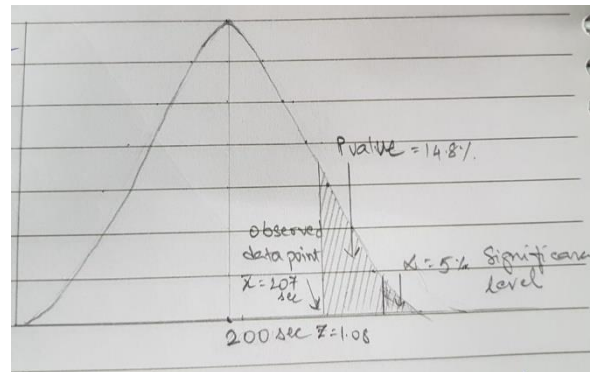 Pvalue = 14.8%
observed
data point
x = 207
sec
α = 5%
Significance
level
200 sec Z=1.08